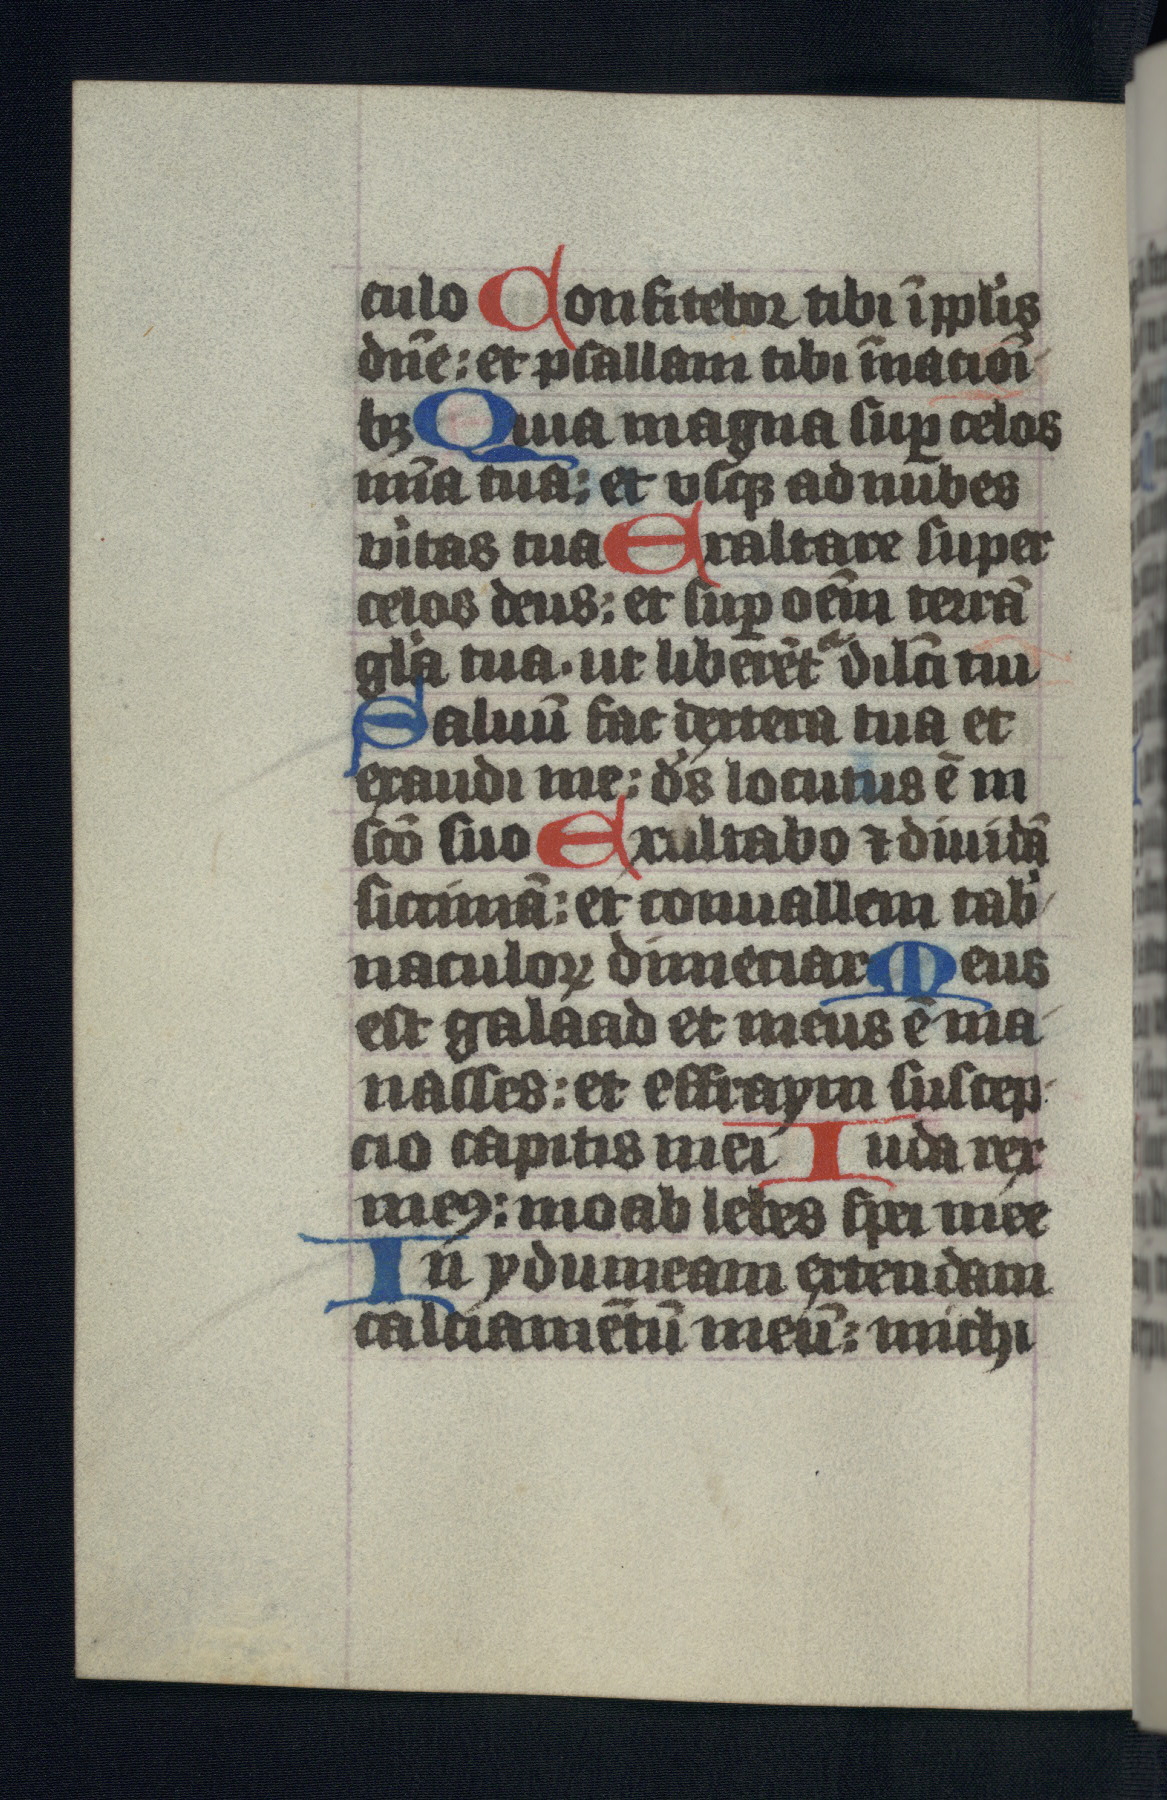 culo Confitebor tibi ĩ pplis
dñe: et psallam tibi ĩnacioĩ
bꝫ Quia magna suꝑ celos
mĩa tua: et vsqꝫ ad nubes
vitas tua Exaltare super
celos deus: et suꝑ oẽm terrã
glia tua. ut liberẽtᷣ dilc̃i tui
Saluũ fac dextera tua et
exaudi me: ds locutus ẽ in
sc̃o suo Exultabo ⁊ diuidã
siccimã: et conuallem tab
naculoꝝ dimeciar Meus
est galaad et meus ẽ ma
nasses: et effraym suscep
cio capitis mei Iuda rex
meꝰ: moab lebes spei mee
In ydumeam extendam
calciamẽtũ meũ: michi